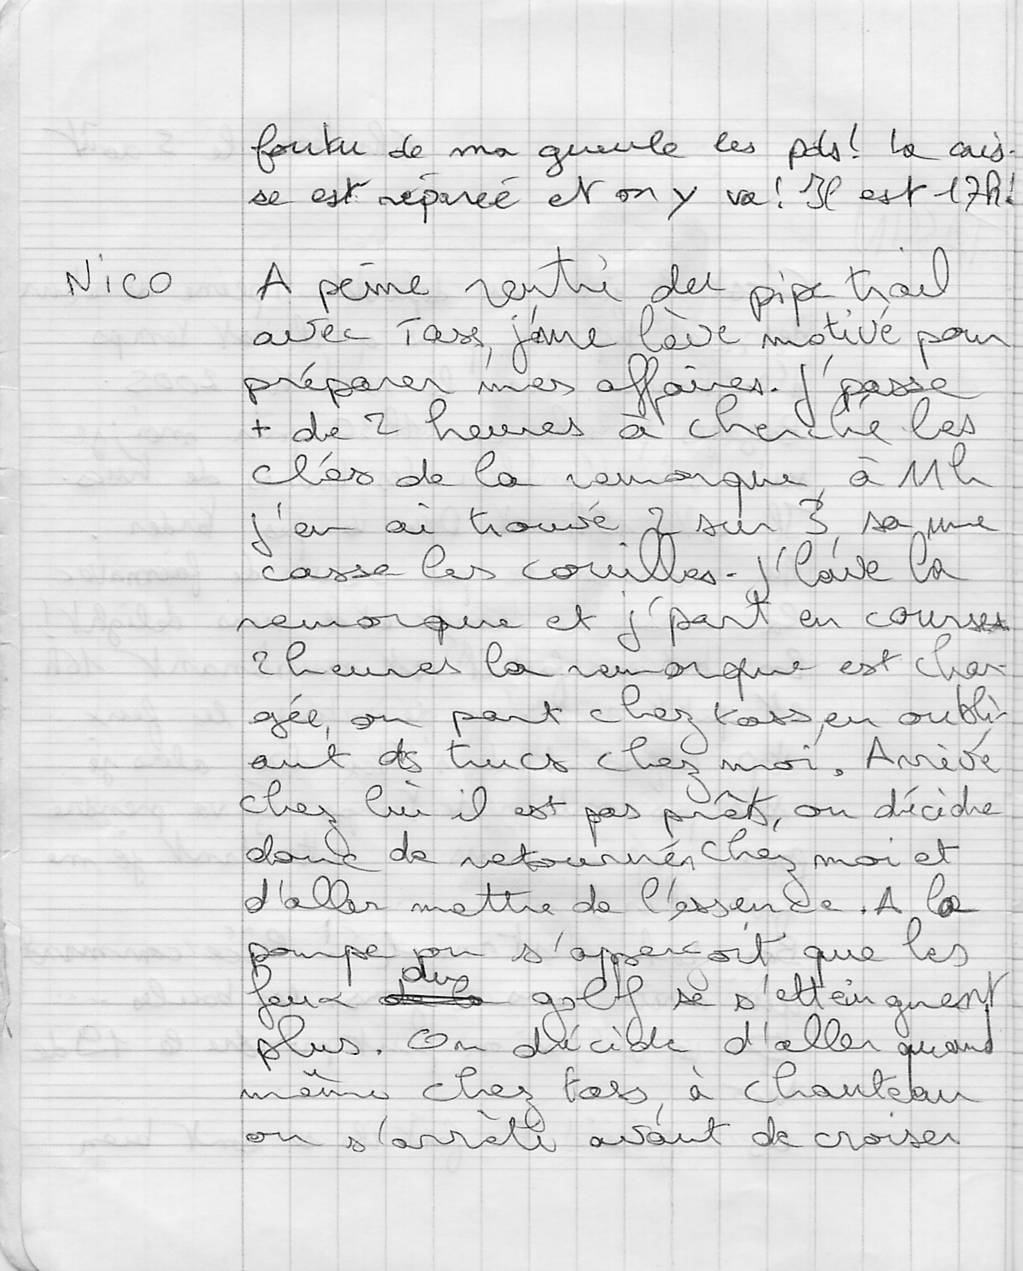 foutu de ma gueule les pds! La cais-
se est réparée et on y va! Il est 17h!
Nico
A peine rentré du pipe trail
avec Tass, j'me lève motivé pour
préparer mes affaires. J'passe
+ de 2 heures à cherché les
clés de la remorque, à 11h
j'en ai trouvé 2 sur 3, sa me
casse les couilles. J'lave la
remorque et j'part en courses
2 heures la remorque est char-
gée, on part chez tass, en oubli-
ant ds trucs chez moi. Arrivé
chez lui il est pas prêt, on décide
donc de retournér chez moi et
d'aller mettre de l'essence. A la
pompe on s'apperçoit que les
feux du golf se s'etteinguent
plus. On décide d'aller quand
même chez tass, à chanteau
on s'arrête avant de croiser